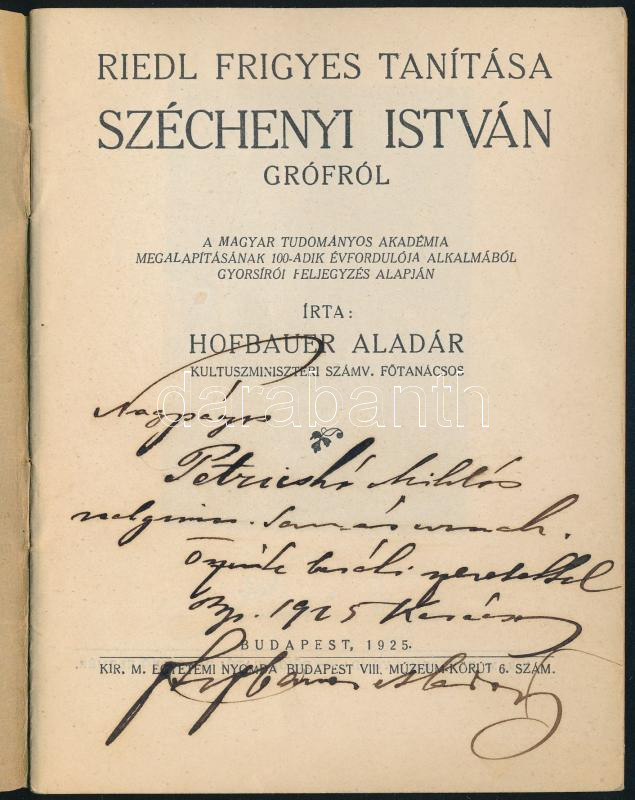 RIEDL FRIGYES TANÍTÁSA
SZÉCHENYI ISTVÁN
GRÓFRÓL
A MAGYAR TUDOMÁNYOS AKADÉMIA
MEGALAPÍTÁSÁNAK 100-ADIK ÉVFORDULÓJA ALKALMÁBÓL
GYORSÍRÓI FELJEGYZÉS ALAPJÁN
ÍRTA:
HOFBAUER ALADÁR
KULTUSZMINISZTERI SZÁMV. FŐTANÁCSOS
darabanth
Nagyságos
Petricskó Miklós
realgimn. tanár úrnak.
Őszinte baráti szeretettel
Bp. 1925 Karácsony
BUDAPEST, 1925.
KIR. M. EGYETEMI NYOMDA BUDAPEST VIII. MÚZEUM-KÖRÚT 6. SZÁM.
Hofbauer Aladár